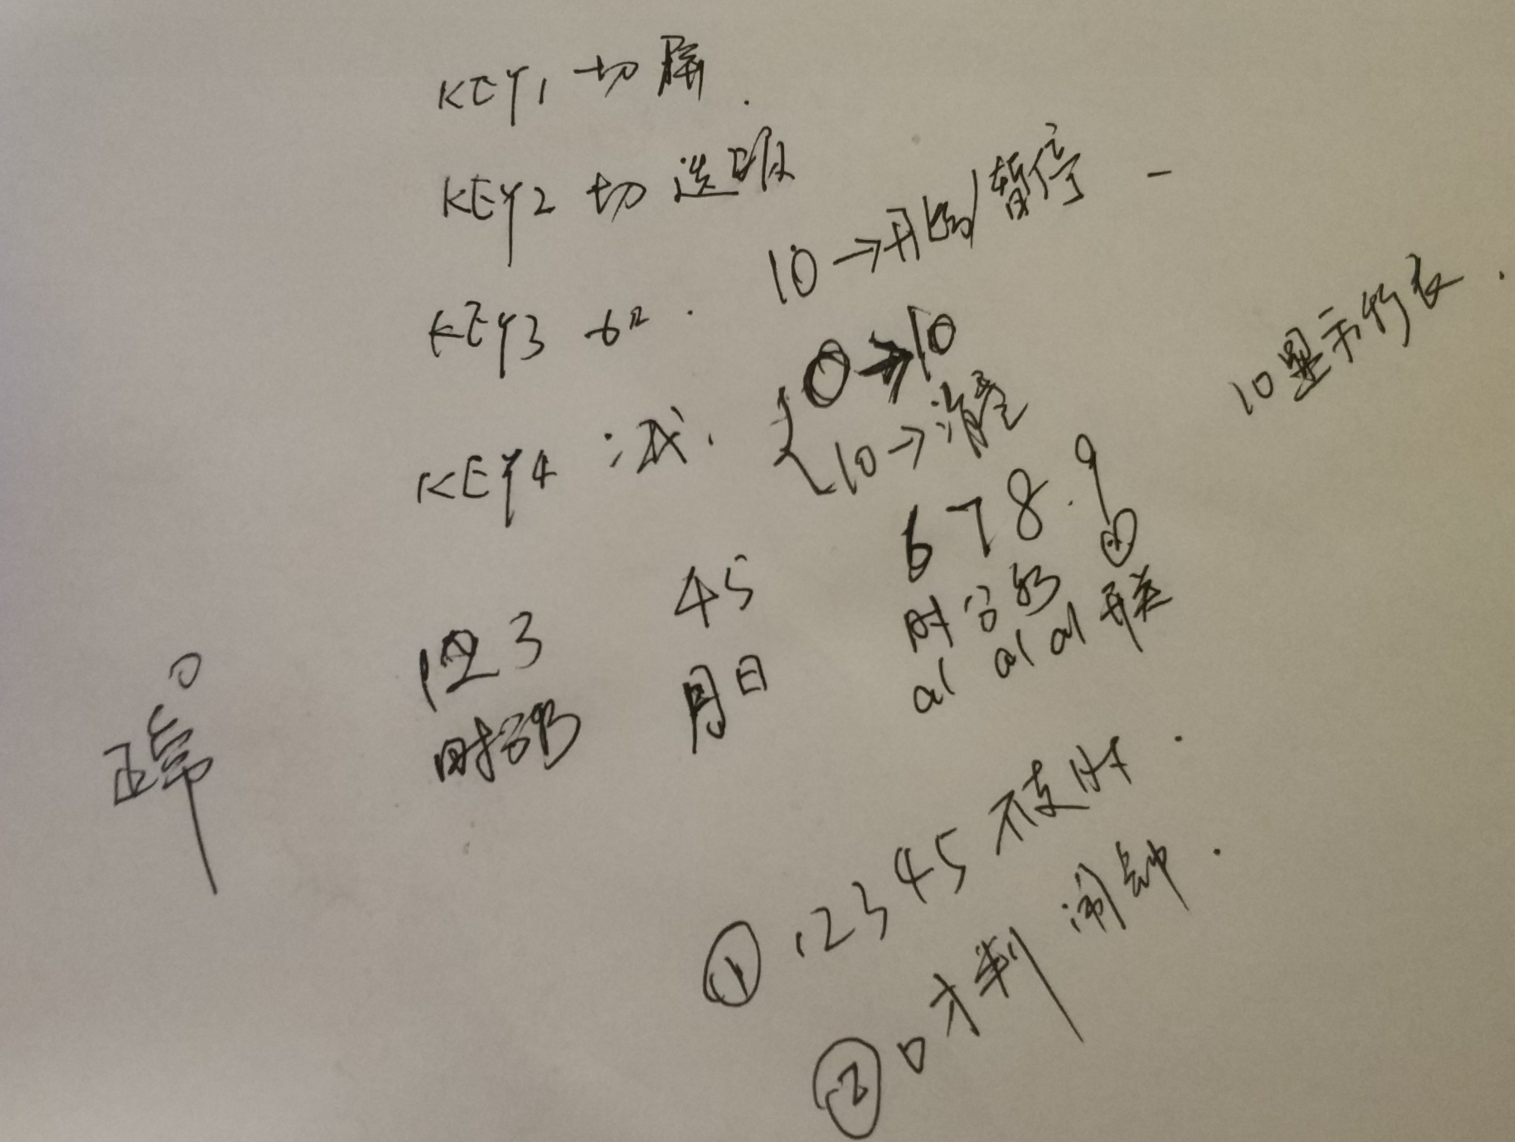 KEY1 切屏.
KEY2 切选项
KEY3 加. 10→开始/暂停 -
KEY4 减. { 0→10
10→清零
10显示秒表.
0
正常
1 2 3
时分秒
4 5
月日
6 7 8 . 9
时分秒
al al al 开关
① 12345 不走时.
② 0才判 闹钟.